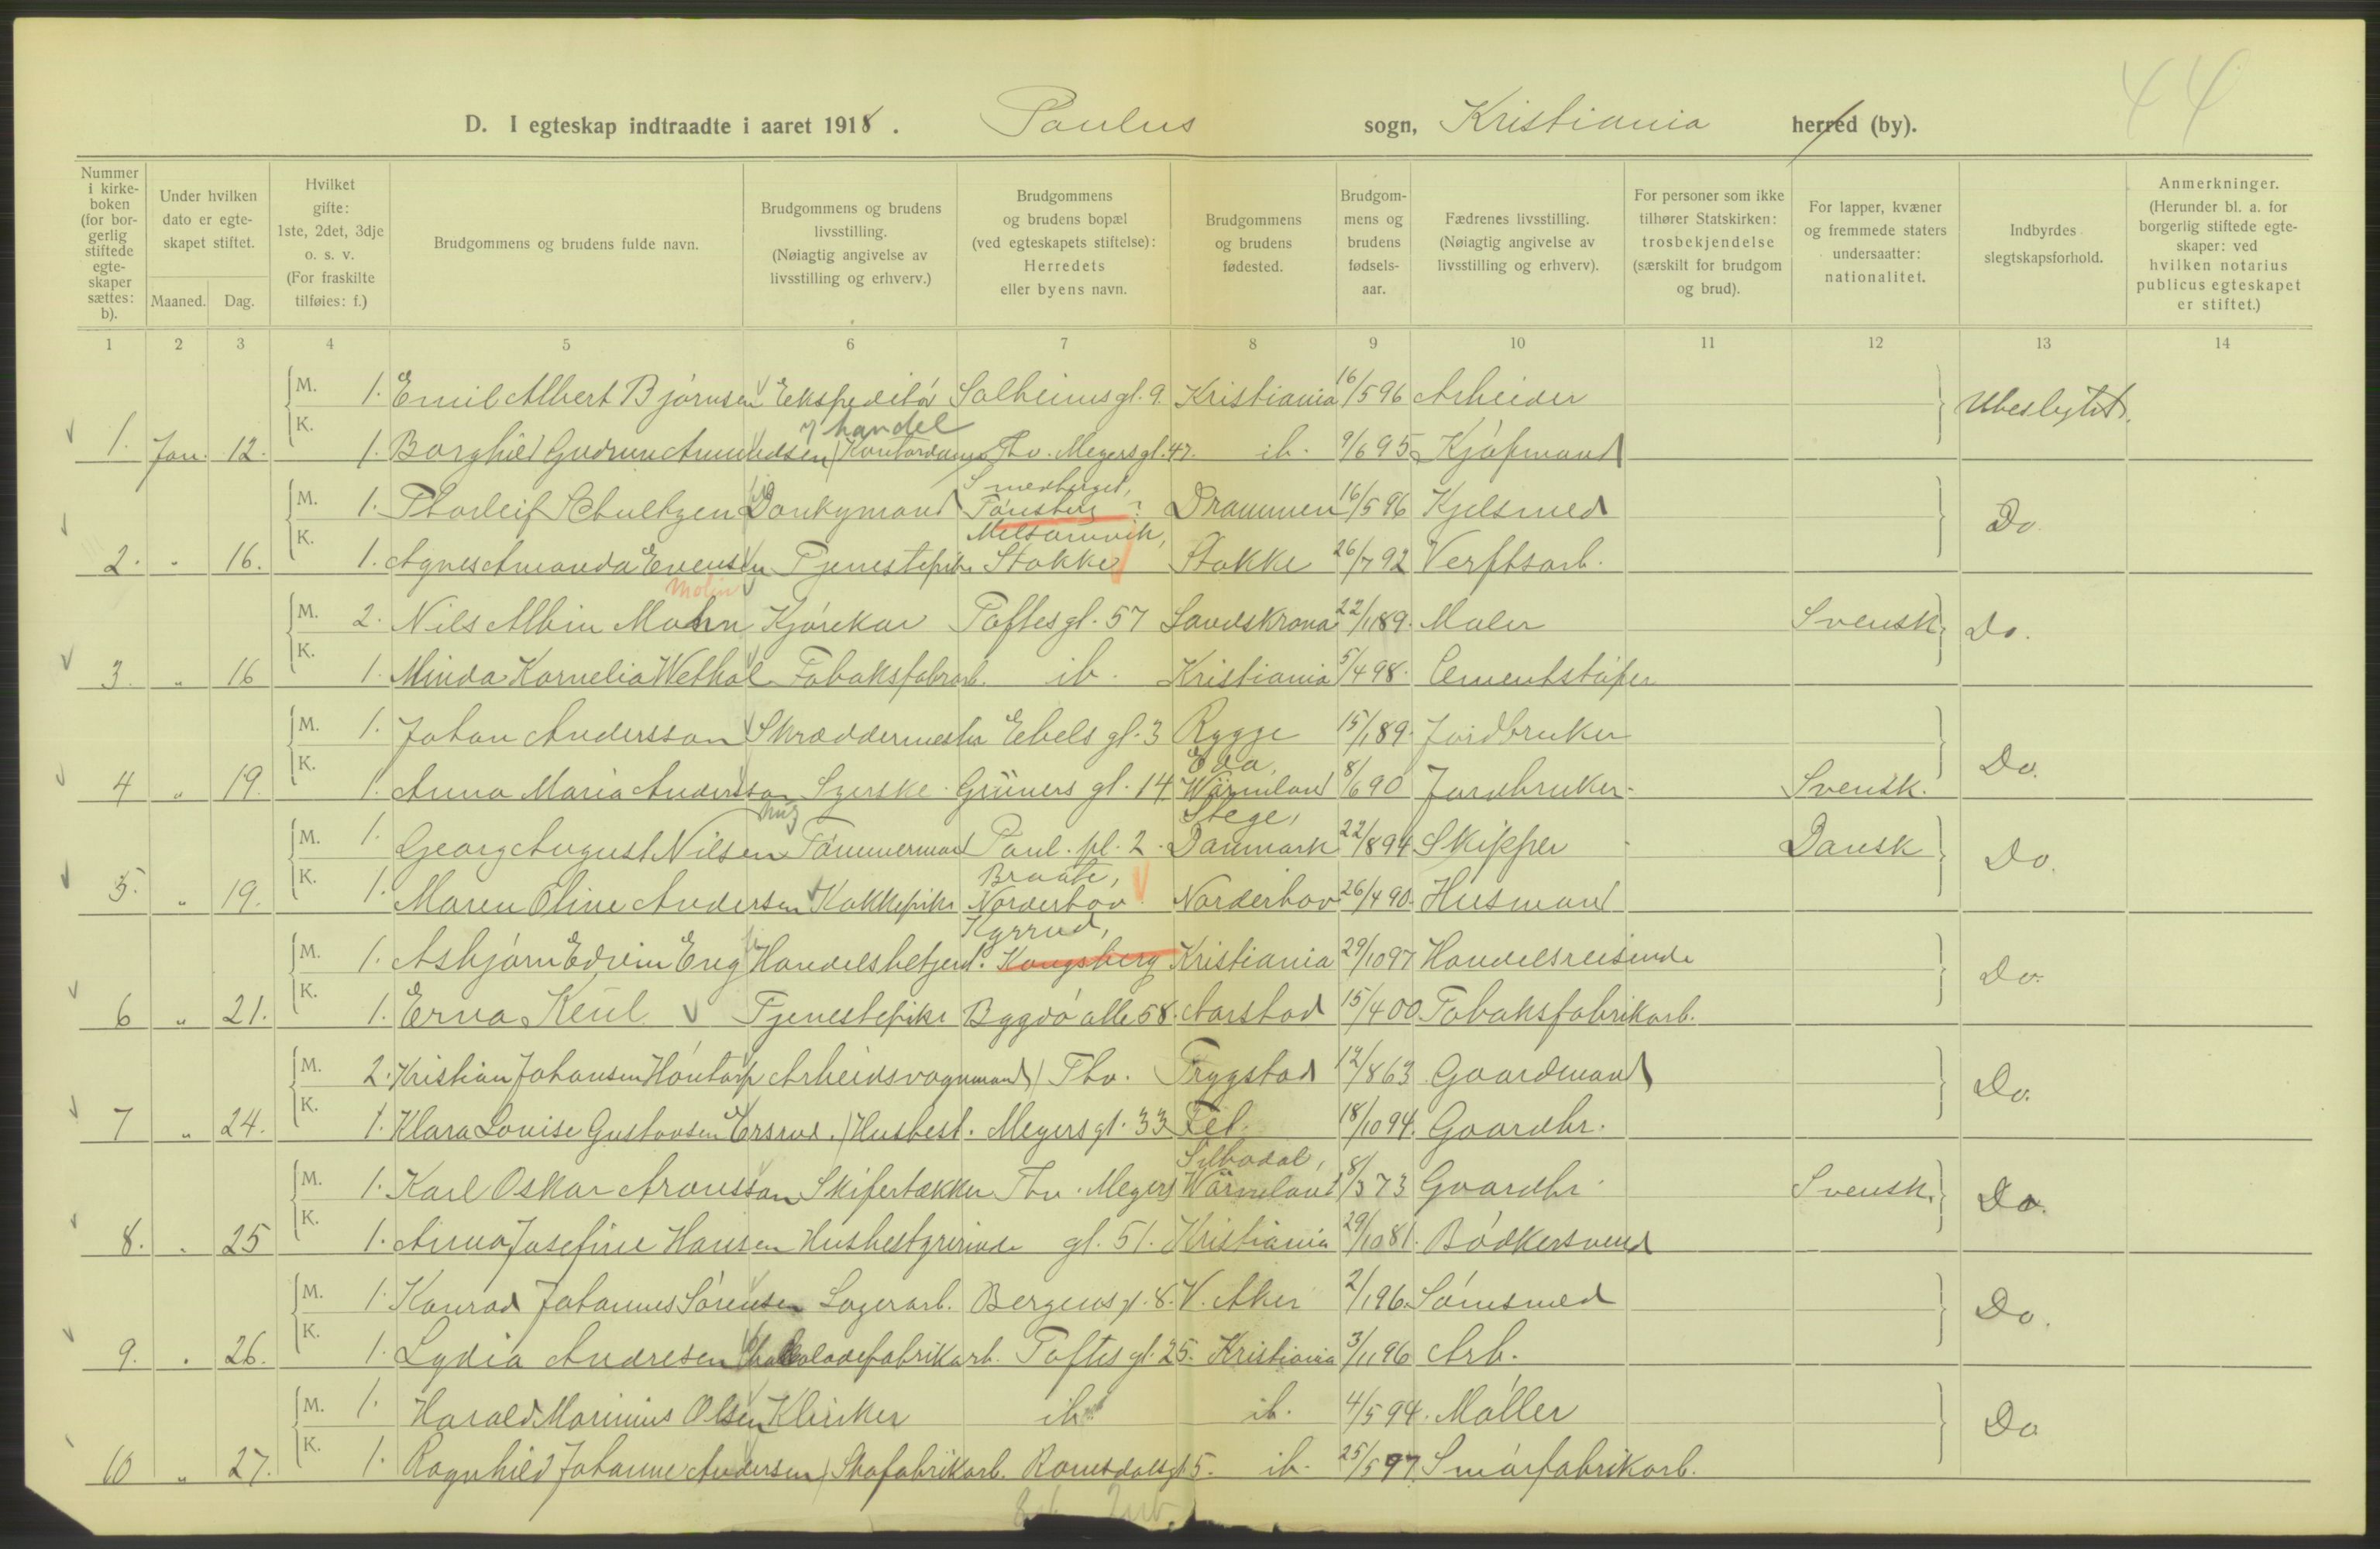 44
D. I egteskap indtraadte i aaret 1918. Paulus sogn, Kristiania herred (by).
Nummer i kirke-boken (for bor-gerlig stiftede egte-skaper sættes: b).
Under hvilken dato er egte-skapet stiftet.
Maaned. Dag.
Hvilket gifte: 1ste, 2det, 3dje o. s. v. (For fraskilte tilføies: f.)
Brudgommens og brudens fulde navn.
Brudgommens og brudens livsstilling. (Nøiagtig angivelse av livsstilling og erhverv.)
Brudgommens og brudens bopæl (ved egteskapets stiftelse): Herredets eller byens navn.
Brudgommens og brudens fødested.
Brudgom-mens og brudens fødsels-aar.
Fædrenes livsstilling. (Nøiagtig angivelse av livsstilling og erhverv).
For personer som ikke tilhører Statskirken: trosbekjendelse (særskilt for brudgom og brud).
For lapper, kvæner og fremmede staters undersaatter: nationalitet.
Indbyrdes slegtskapsforhold.
Anmerkninger. (Herunder bl. a. for borgerlig stiftede egte-skaper: ved hvilken notarius publicus egteskapet er stiftet.)
1 2 3 4 5 6 7 8 9 10 11 12 13 14
M. 1. Emil Albert Bjørnsen Ekspeditør Solheimsgt. 9. Kristiania 16/5 96 Arbeider Ubeslegtet.
handel
1. Jan. 12. K. 1. Borghild Gudrun Amundsen Kontordame Thv. Meyersgt. 47. ib. 9/6 95 Kjøpmand
Smedberget,
M. 1. Thorleif Schultzen Donkymand Tønsberg Drammen 16/5 96 Kjelsmed Do.
Melsomvik,
2. " 16. K. 1. Agnes Amanda Evensen Tjenestepike Stokke Stokke 26/7 92 Verftsarb.
Molin
M. 2. Nils Albin Molin Kjørekar Toftesgt. 57 Landskrona 22/1 89. Maler Svensk Do.
3. " 16 K. 1. Minda Kornelia Wethal Tobaksfabrarb. ib. Kristiania 5/4 98. Cementstøper
M. 1. Johan Andersson Skræddermester Ebels gt. 3 Rygge 15/1 89. Jordbruker Do.
Eda,
4 " 19. K. 1. Anna Maria Andersson Syerske. Grüners gt. 14 Wärmland 8/6 90 Jordbruker. Svensk.
Stege,
M. 1. Georg August Nilsen Tømmermand Paul. pl. 2. Danmark 22/8 94 Skipper Dansk Do.
Braate,
5. " 19. K. 1. Maren Oline Andersen Kokkepike Norderhov Norderhov 26/4 90. Husmand
Kyrrud,
M. 1. Asbjørn Edvin Eng Handelsbetjent. Kongsberg Kristiania 29/10 97 Handelsreisende Do.
6 " 21. K. 1. Erna Keül Tjenestepike Bygdø alle 58. Aarstad 15/4 00 Tobaksfabrikarb.
M. 2. Kristian Johansen Høntorp Arbeidsvognmand Thv. Trygstad 12/8 63 Gaardmand Do.
7 " 24. K. 1. Klara Lovise Gustavsen Ersrud. Husbest. Meyersgt. 33 Fet. 18/10 94. Gaardbr.
Silbodal,
M. 1. Karl Oskar Aronsson Skifertækker Thv. Meyers Wärmland 8/3 73 Gaardbr. Svensk. Do.
8. " 25 K. 1. Anna Josefine Hansen Husbestyrerinde gt. 51. Kristiania 29/10 81. Bødkersvend
M. 1. Konrad Johannes Sørensen Lagerarb. Bergensgt. 8. V. Aker 2/1 96. Sømsmed Do.
9. " 26. K. 1. Lydia Andresen Chokoladefabrikarb. Toftes gt. 25. Kristiania 3/11 96 Arb.
M. 1. Harald Marinius Olsen Klinker ib. ib. 4/5 94. Møller Do
10 " 27. K. 1. Ragnhild Johanne Andersen Skofabrikarb. Romsdalsgt. 5. ib. 25/5 97. Smørfabrikarb.